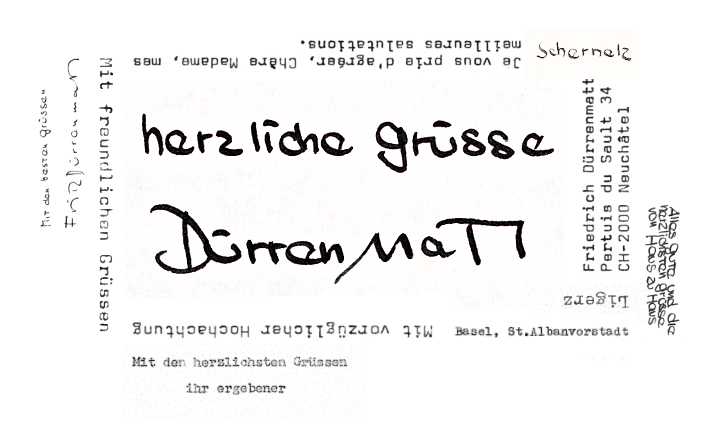 Je vous prie d'agréer, Chère Madame, mes
meilleures salutations.
Schernelz
Mit den besten Grüssen
Fritz Dürrenmatt
Mit freundlichen Grüssen
herzliche Grüsse
Dürrenmatt
Friedrich Dürrenmatt
Pertuis du Sault 34
CH-2000 Neuchâtel
Alles Gute und die
herzlichsten Grüsse
von Haus zu Haus
Ligerz
Mit vorzüglicher Hochachtung
Basel, St.Albanvorstadt
Mit den herzlichsten Grüssen
ihr ergebener